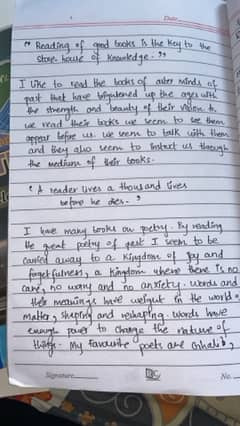 Date
" Reading of good books is the key to the
store house of knowledge. "
I like to read the books of outer minds of
past that have brightened up the ages with
the strength and beauty of their vision. In
we read their books we seem to see them
appear before us. we seem to talk with them
and they also seem to instruct us through
the medium of their books.
" A reader lives a thousand lives
before he dies. "
I have many books on poetry. By reading
the great poetry of past I seem to be
carried away to a kingdom of joy and
forgetfulness, a kingdom where there is no
care, no worry and no anxiety. words and
their meanings have weight in the world of
matter, shaping and reshaping. words have
enough power to change the nature of
things. My favourite poets are Ghalib,
Signature
No.